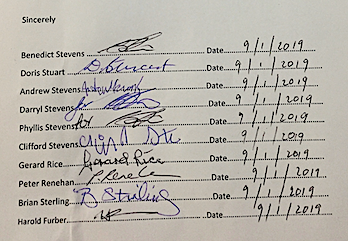 Sincerely
Benedict Stevens Date 9/1/2019
Doris Stuart D. Stuart Date 9/1/2019
Andrew Stevens Date 9/1/2019
Darryl Stevens for Date 9/1/2019
Phyllis Stevens for Date 9/1/2019
Clifford Stevens Date 9/1/2019
Gerard Rice Gerard Rice Date 9/1/2019
Peter Renehan Date 9/1/2019
Brian Sterling B Stirling Date 9/1/2019
Harold Furber Date 9/1/2019